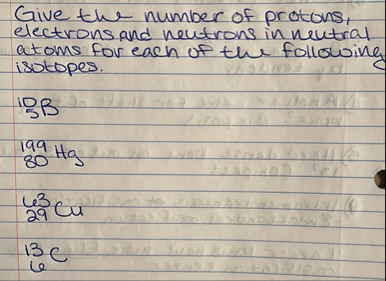 Give the number of protons,
electrons and neutrons in neutral
atoms for each of the following
isotopes.
10
5 B
199
80 Hg
63
29 Cu
13
6 C